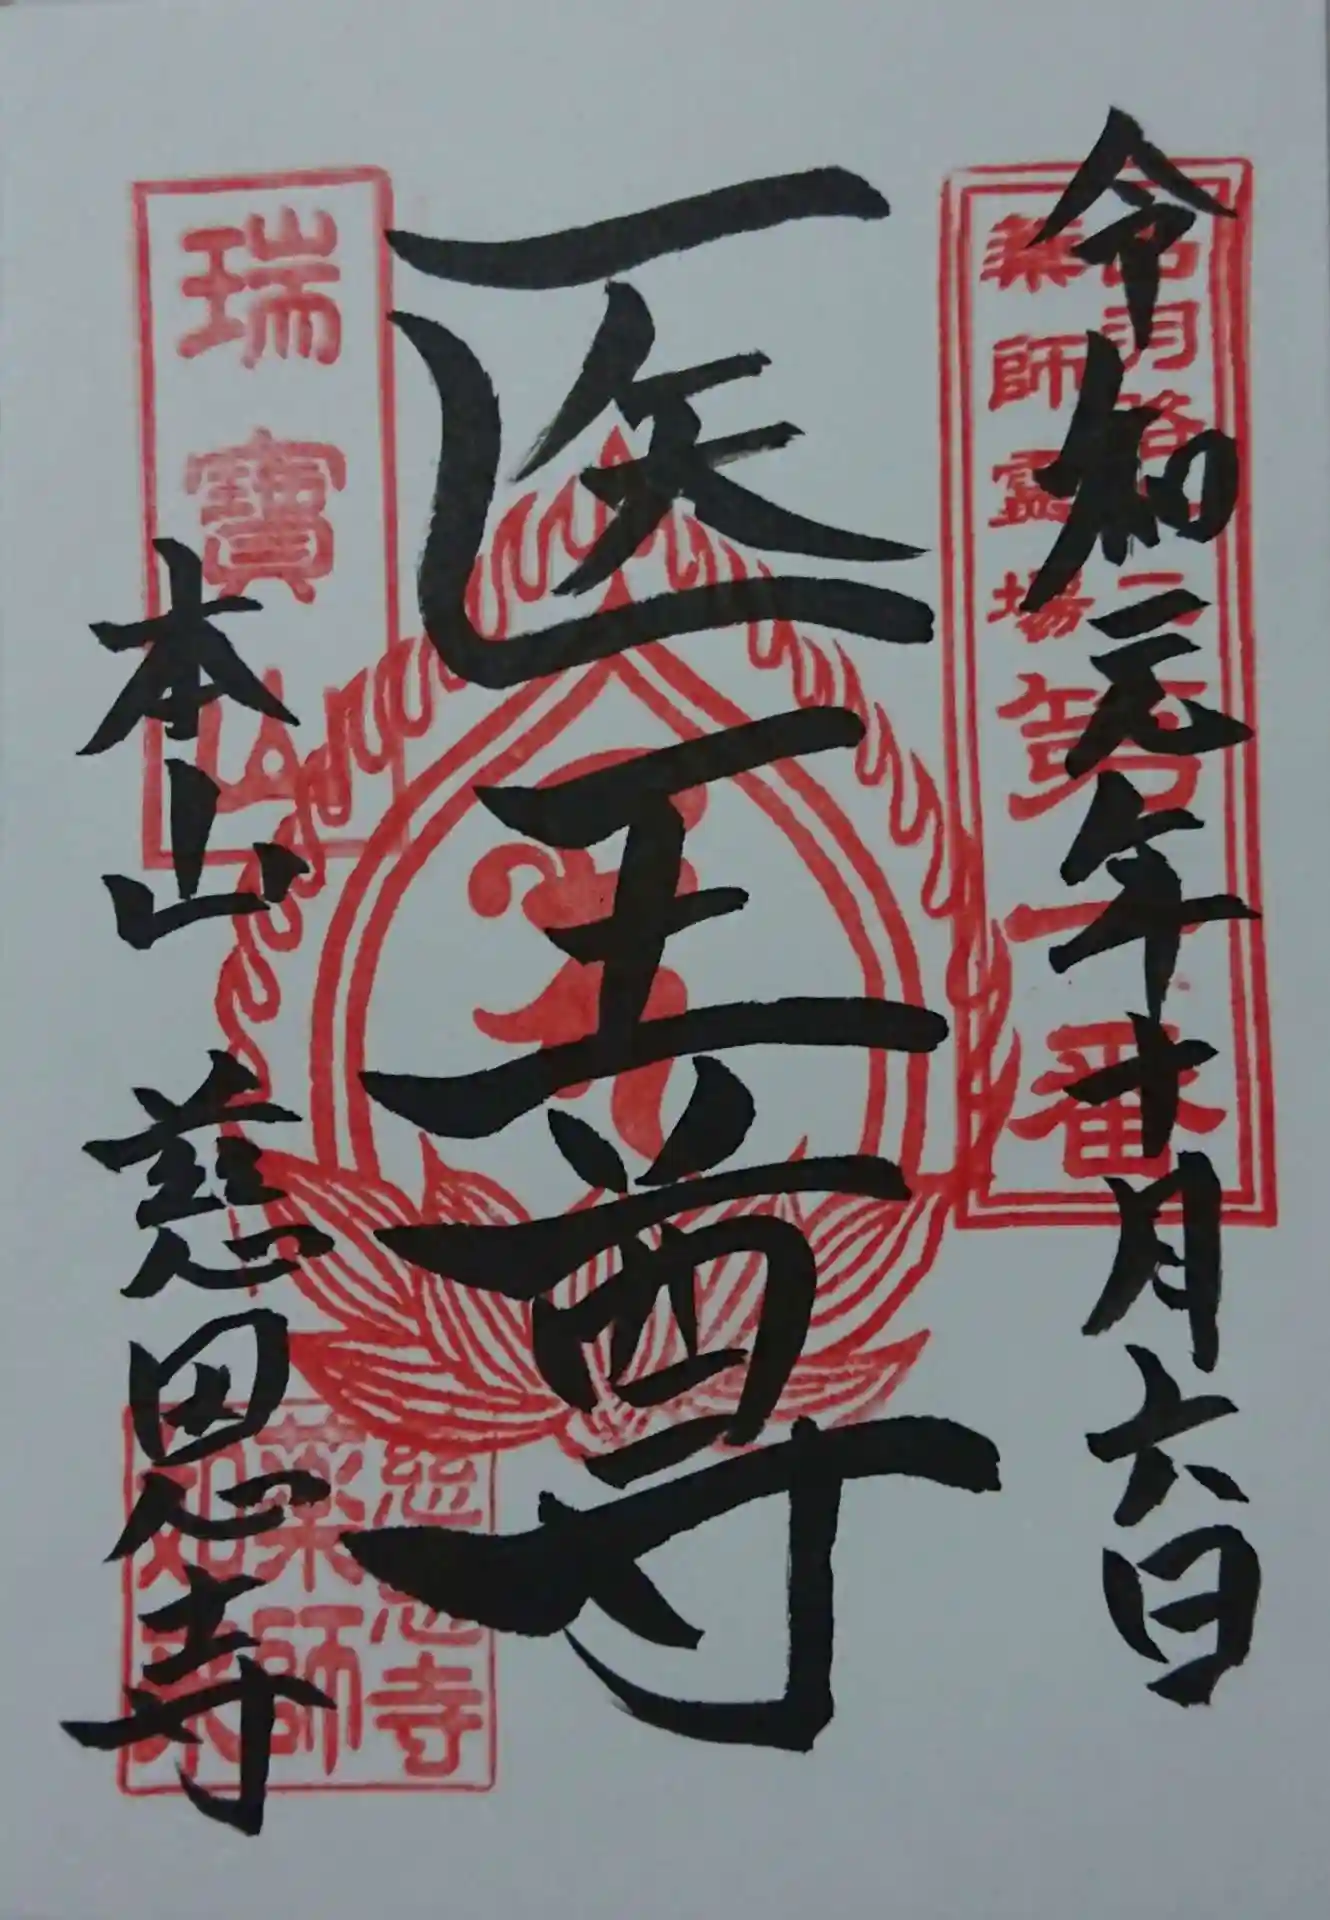 令和元年十月六日
出羽
薬師霊場
第一番
医王尊
瑞寳山
本山 慈恩寺
慈恩寺
薬師
如来